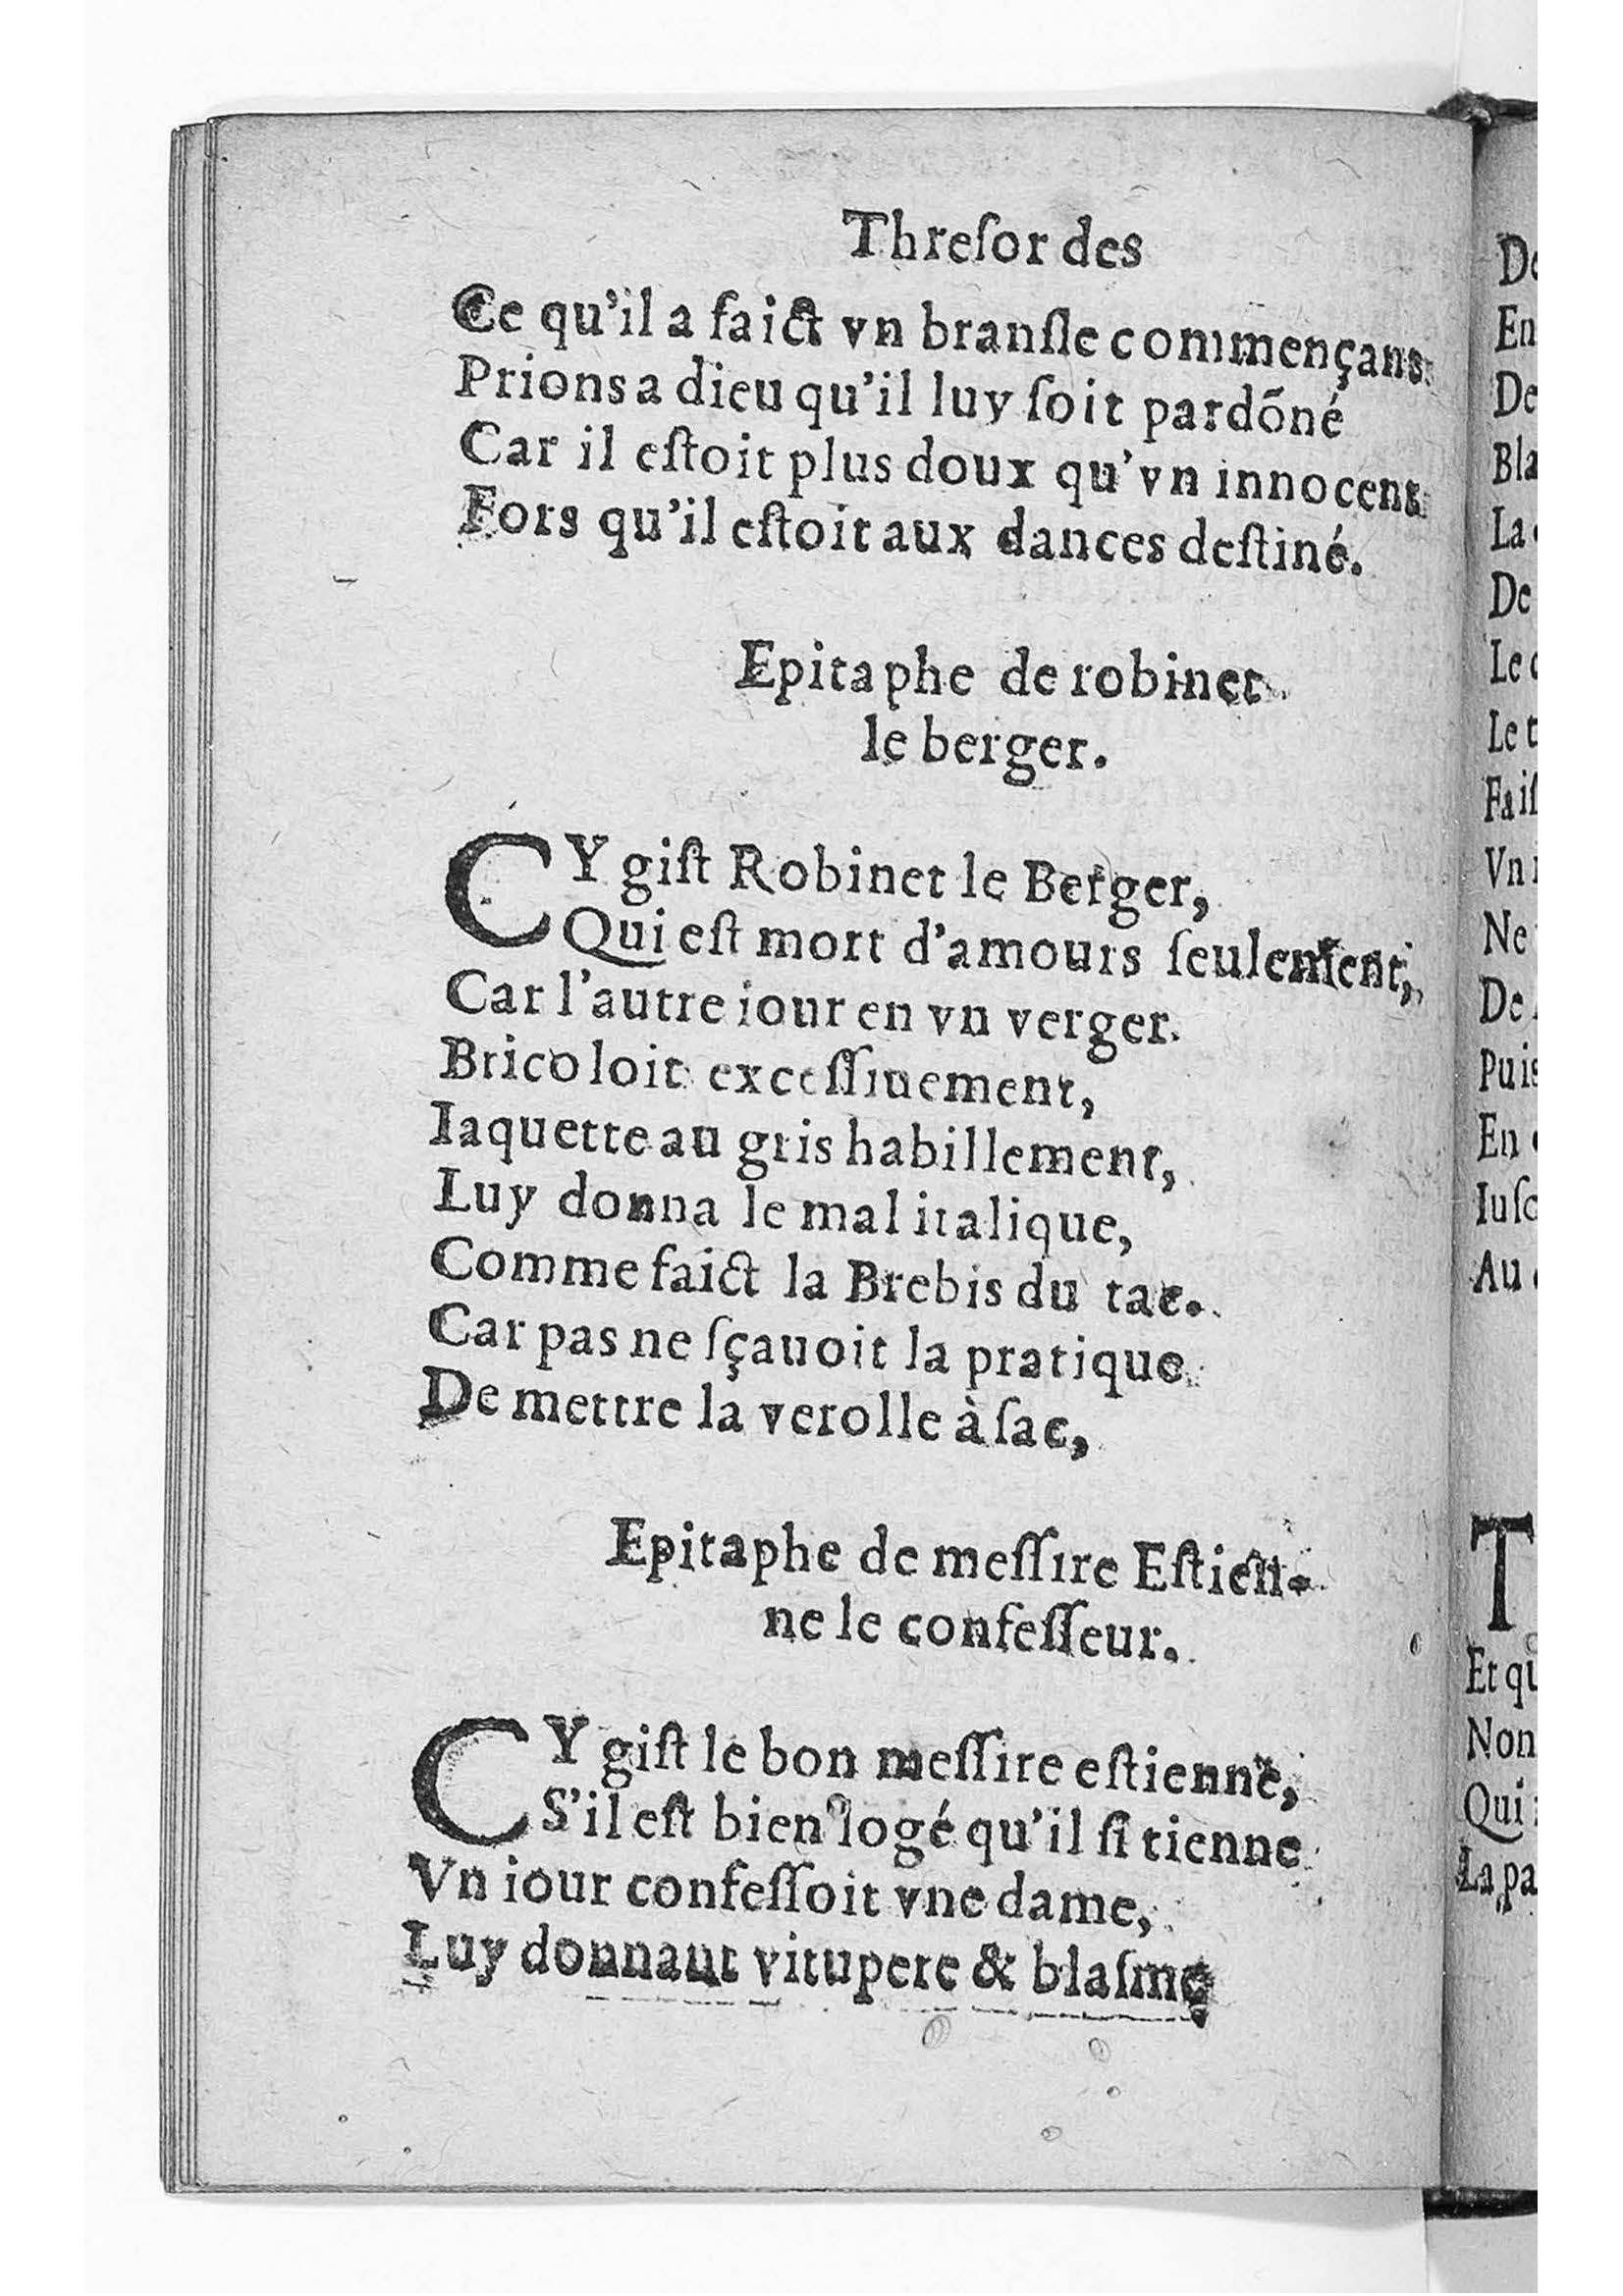 Threſor des
Ce qu'il a faict vn branſle commençans
Prions a dieu qu'il luy ſoit pardõné
Car il eſtoit plus doux qu'vn innocent
Fors qu'il eſtoit aux dances deſtiné.
Epitaphe de robinet
le berger.
CY giſt Robinet le Berger,
Qui eſt mort d'amours ſeulement,
Car l'autre iour en vn verger.
Bricoloit exceſſiuement,
Iaquette au gris habillement,
Luy donna le mal italique,
Comme faict la Brebis du tac.
Car pas ne ſçauoit la pratique
De mettre la verolle à ſac,
Epitaphe de meſſire Eſtien-
ne le confeſſeur.
CY giſt le bon meſſire eſtienne,
S'il eſt bien logé qu'il ſi tienne
Vn iour confeſſoit vne dame,
Luy donnant vitupere & blaſme
En
De
Bla
La
De
Le
Le t
Faiſ
Vn
Ne
De
Puis
En
Iuſ
Au
T
Et qu
Non
Qui
La pa